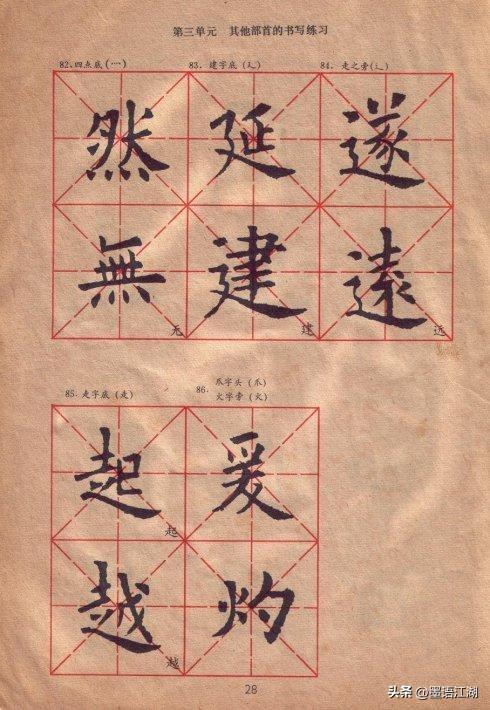 第三单元 其他部首的书写练习
82.四点底(灬)
83. 建字底(廴)
84. 走之旁(辶)
然 延 遂
無 建 遠
无 建 远
85. 走字底(走)
86. 爪字头(爪)
火字旁(火)
起 爰
起
越 灼
越
28
头条 @墨语江湖